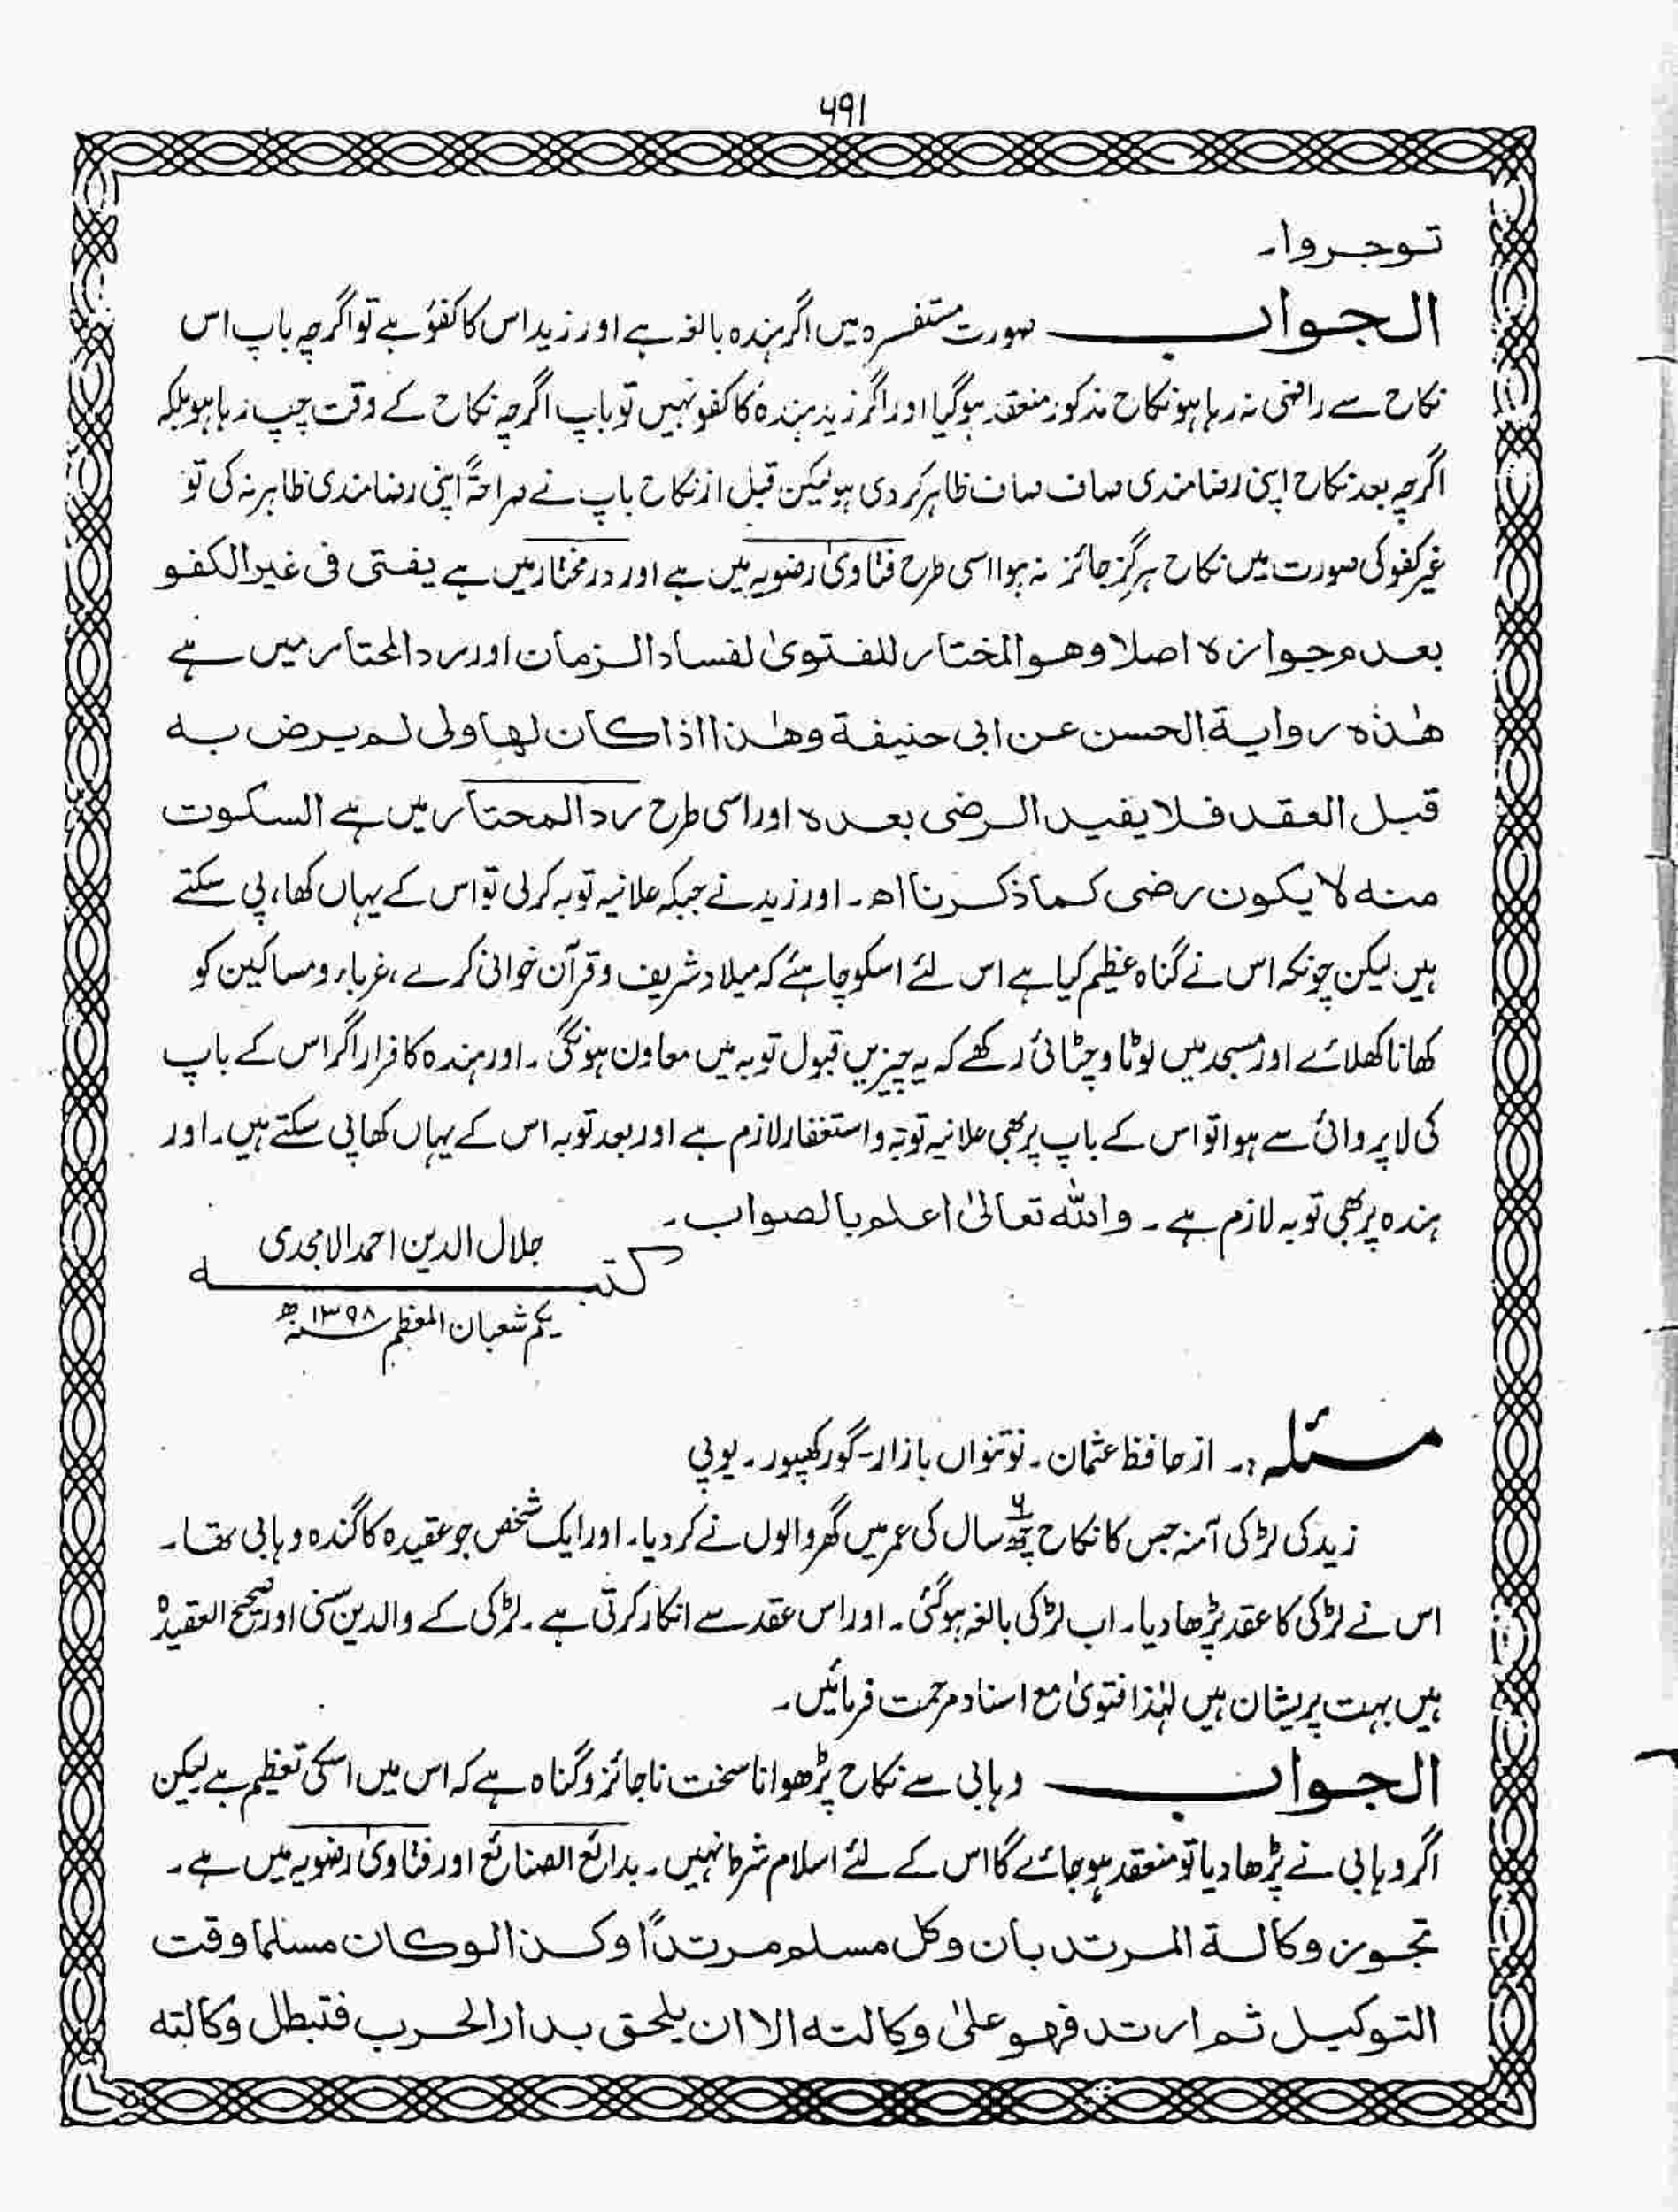 ۶۹۱
توجروا۔
الجواب صورت مستفسرہ میں اگر ہندہ بالغہ ہے اور زید اس کا کفؤ ہے تو اگرچہ باپ اس
نکاح سے راضی نہ رہا ہو نکاح مذکور منعقد ہوگیا اور اگر زید ہندہ کا کفو نہیں تو باپ اگرچہ نکاح کے وقت چپ رہا ہو بلکہ
اگرچہ بعد نکاح اپنی رضامندی صاف صاف ظاہر کر دی ہو لیکن قبل از نکاح باپ نے صراحۃً اپنی رضامندی ظاہر نہ کی تو
غیر کفو کی صورت میں نکاح ہرگز جائز نہ ہوا اسی طرح فتاویٰ رضویہ میں ہے اور در مختار میں ہے یفتی فی غیر الکفو
بعدم جوازہ اصلا وھو المختار للفتویٰ لفساد الزمان اور رد المحتار میں ہے
ھٰذہ روایۃ الحسن عن ابی حنیفۃ وھٰذا اذا کان لھا ولی لم یرض بہ
قبل العقد فلا یفید الرضی بعدہ اور اسی طرح رد المحتار میں ہے السکوت
منہ لا یکون رضی کما ذکرنا اھ۔ اور زید نے جبکہ علانیہ توبہ کرلی تو اس کے یہاں کھا، پی سکتے
ہیں لیکن چونکہ اس نے گناہ عظیم کیا ہے اس لئے اسکو چاہئے کہ میلاد شریف و قرآن خوانی کرے، غرباء و مساکین کو
کھانا کھلائے اور مسجد میں لوٹا و چٹائی رکھے کہ یہ چیزیں قبول توبہ میں معاون ہونگی۔ اور ہندہ کا فرار اگر اس کے باپ
کی لاپروائی سے ہوا تو اس کے باپ پر بھی علانیہ توبہ و استغفار لازم ہے اور بعد توبہ اس کے یہاں کھا پی سکتے ہیں۔ اور
ہندہ پر بھی توبہ لازم ہے۔ واللہ تعالیٰ اعلم بالصواب۔
جلال الدین احمد الامجدی
کتبہ
یکم شعبان المعظم سنہ ۱۳۹۸ھ
مسئلہ:۔ از حافظ عثمان۔ نوتنواں بازار۔ گورکھپور۔ یوپی
زید کی لڑکی آمنہ جس کا نکاح چھ ۶ سال کی عمر میں گھر والوں نے کر دیا۔ اور ایک شخص جو عقیدہ کا گندہ وہابی تھا۔
اس نے لڑکی کا عقد پڑھا دیا۔ اب لڑکی بالغہ ہوگئی۔ اور اس عقد سے انکار کرتی ہے۔ لڑکی کے والدین سنی اور صحیح العقیدہ
ہیں بہت پریشان ہیں لہٰذا فتویٰ مع اسناد مرحمت فرمائیں۔
الجواب وہابی سے نکاح پڑھوانا سخت ناجائز و گناہ ہے کہ اس میں اسکی تعظیم ہے لیکن
اگر وہابی نے پڑھا دیا تو منعقد ہو جائے گا اس کے لئے اسلام شرط نہیں۔ بدائع الصنائع اور فتاویٰ رضویہ میں ہے۔
تجوز وکالۃ المرتد بان وکل مسلم مرتدًا وکذا لو کان مسلما وقت
التوکیل ثم ارتد فھو علیٰ وکالتہ الا ان یلحق بدار الحرب فتبطل وکالتہ